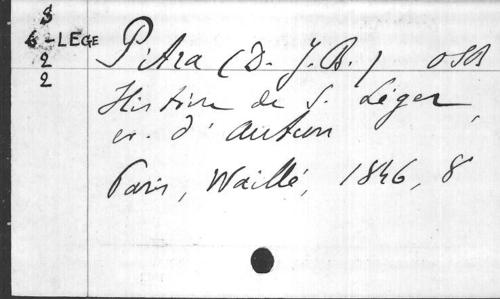 8
6-LEGE
2
2
Pitra (D. J.B.) OSB
Histoire de S. Léger,
ev. d'Autun
Paris, Waille, 1846, 8